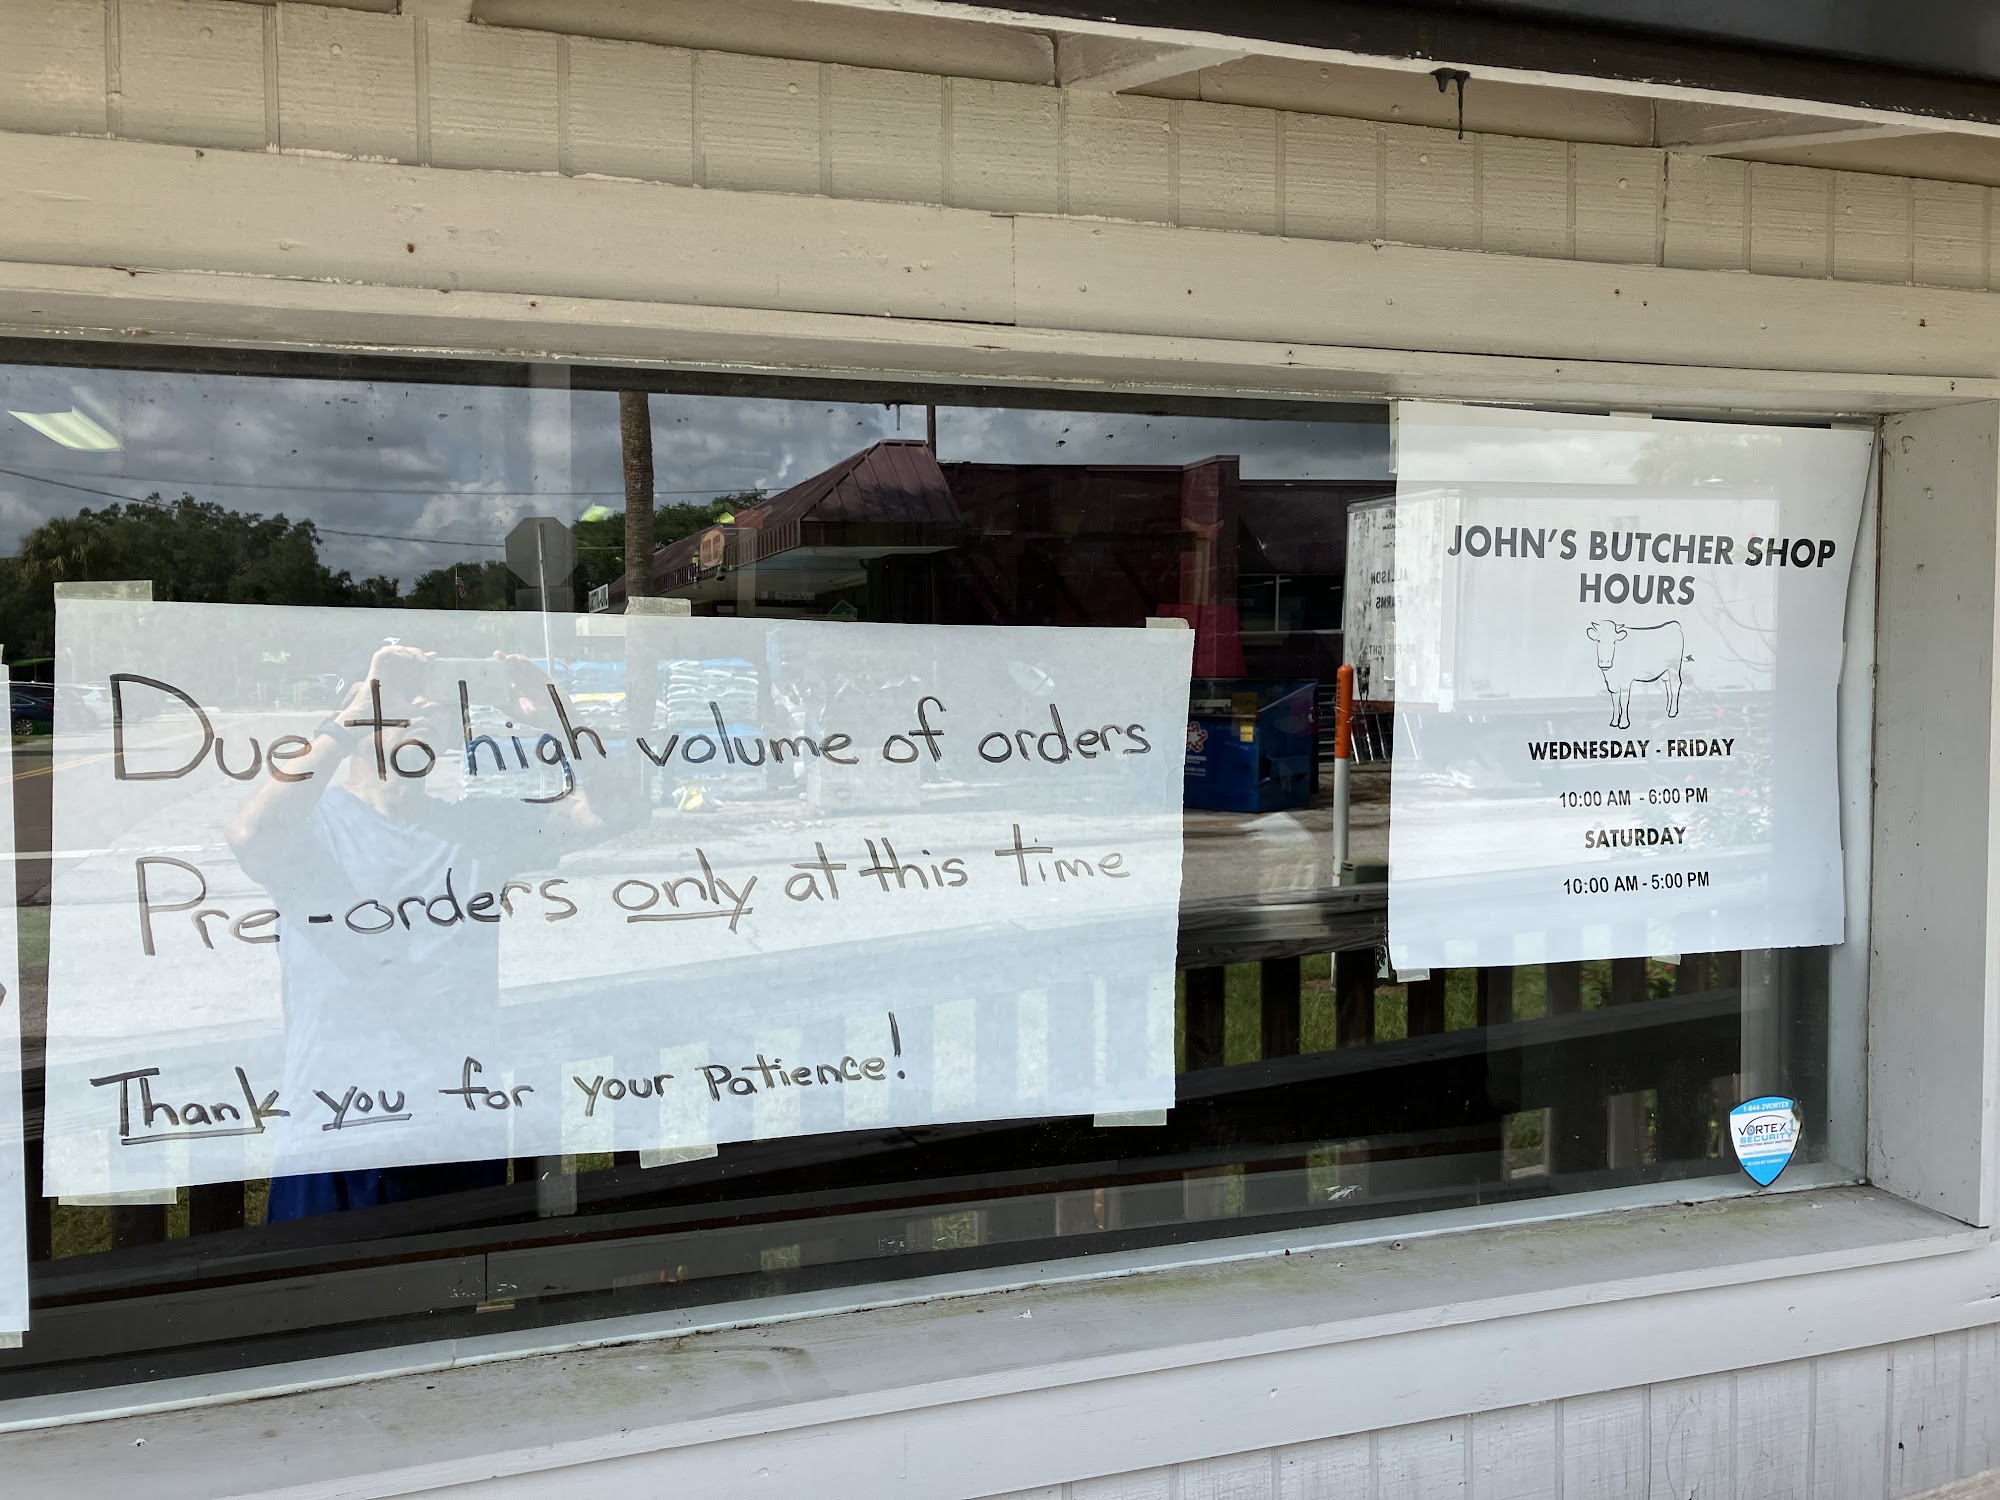 Due to high volume of orders
Pre-orders only at this time
Thank you for your Patience!
JOHN'S BUTCHER SHOP
HOURS
WEDNESDAY - FRIDAY
10:00 AM - 6:00 PM
SATURDAY
10:00 AM - 5:00 PM
ALLISON
FARMS
1-844-2VORTEX
VORTEX
SECURITY